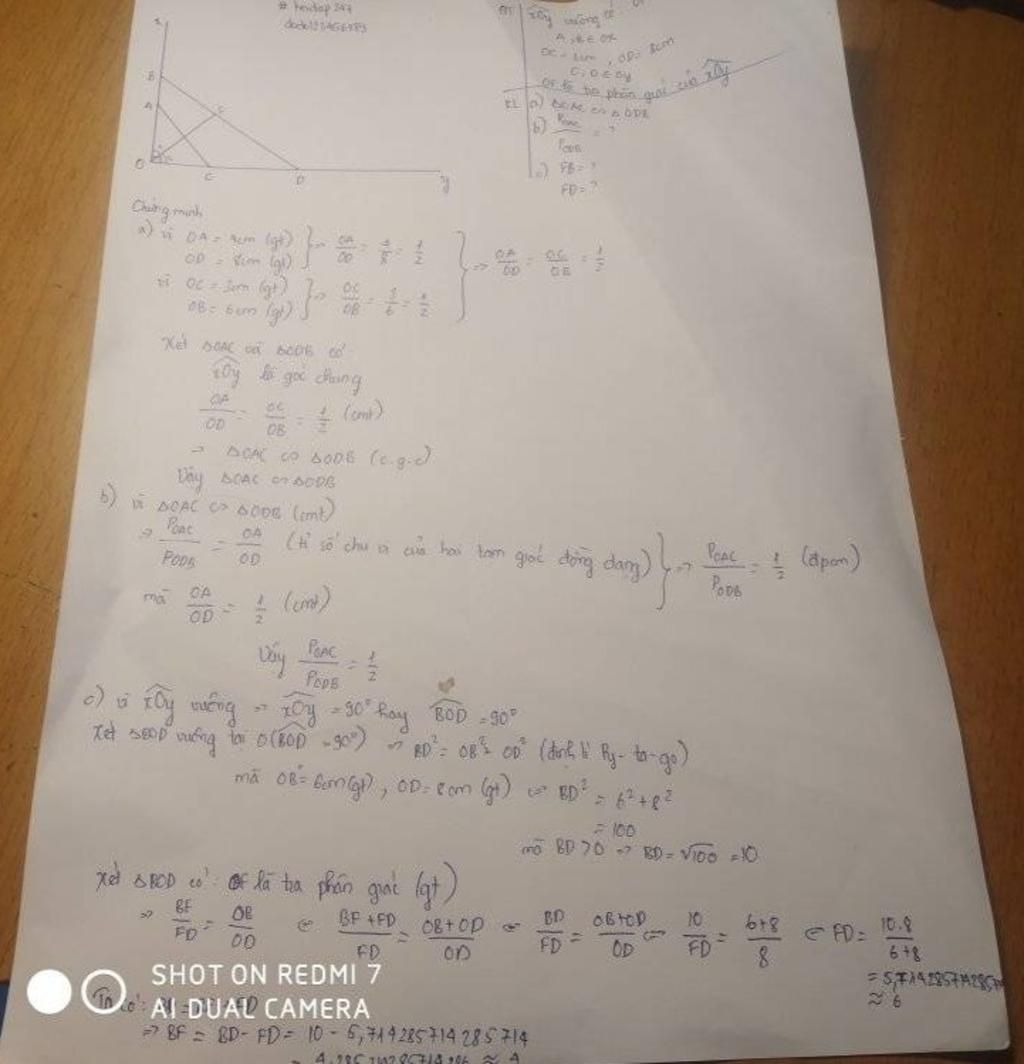 xOy vuông có:
A, B ∈ Ox
OC = 3cm, OD = 8cm
C, D ∈ Oy
OF là tia phân giác của xOy
KL a) ΔOAC ∽ ΔODB
b) P_OAC / P_ODB = ?
c) FB = ?
FD = ?
x
B
A
F
O
C
D
y
Chứng minh
a) vì OA = 4cm (gt)
OD = 8cm (gt) } ⇒ OA/OD = 4/8 = 1/2
vì OC = 3cm (gt)
OB = 6cm (gt) } ⇒ OC/OB = 3/6 = 1/2
} ⇒ OA/OD = OC/OB = 1/2
Xét ΔOAC và ΔODB có:
xOy là góc chung
OA/OD = OC/OB = 1/2 (cmt)
⇒ ΔOAC ∽ ΔODB (c.g.c)
Vậy ΔOAC ∽ ΔODB
b) vì ΔOAC ∽ ΔODB (cmt)
⇒ P_OAC / P_ODB = OA/OD (tỉ số chu vi của hai tam giác đồng dạng)
mà OA/OD = 1/2 (cmt)
} ⇒ P_OAC / P_ODB = 1/2 (đpcm)
Vậy P_OAC / P_ODB = 1/2
c) vì xOy vuông ⇒ xOy = 90° hay BOD = 90°
Xét ΔBOD vuông tại O (BOD = 90°) ⇒ BD² = OB² + OD² (định lí Py-ta-go)
mà OB = 6cm (gt), OD = 8cm (gt) ⇒ BD² = 6² + 8²
= 100
mà BD > 0 ⇒ BD = √100 = 10
Xét ΔBOD có: OF là tia phân giác (gt)
⇒ BF/FD = OB/OD ⇔ (BF+FD)/FD = (OB+OD)/OD ⇔ BD/FD = (OB+OD)/OD ⇔ 10/FD = (6+8)/8 ⇔ FD = 10.8/(6+8)
= 5,714285714285
≈ 6
SHOT ON REDMI 7
AI DUAL CAMERA
Ta có:
⇒ BF = BD - FD = 10 - 5,714285714285714
= 4,285714285714286 ≈ 4